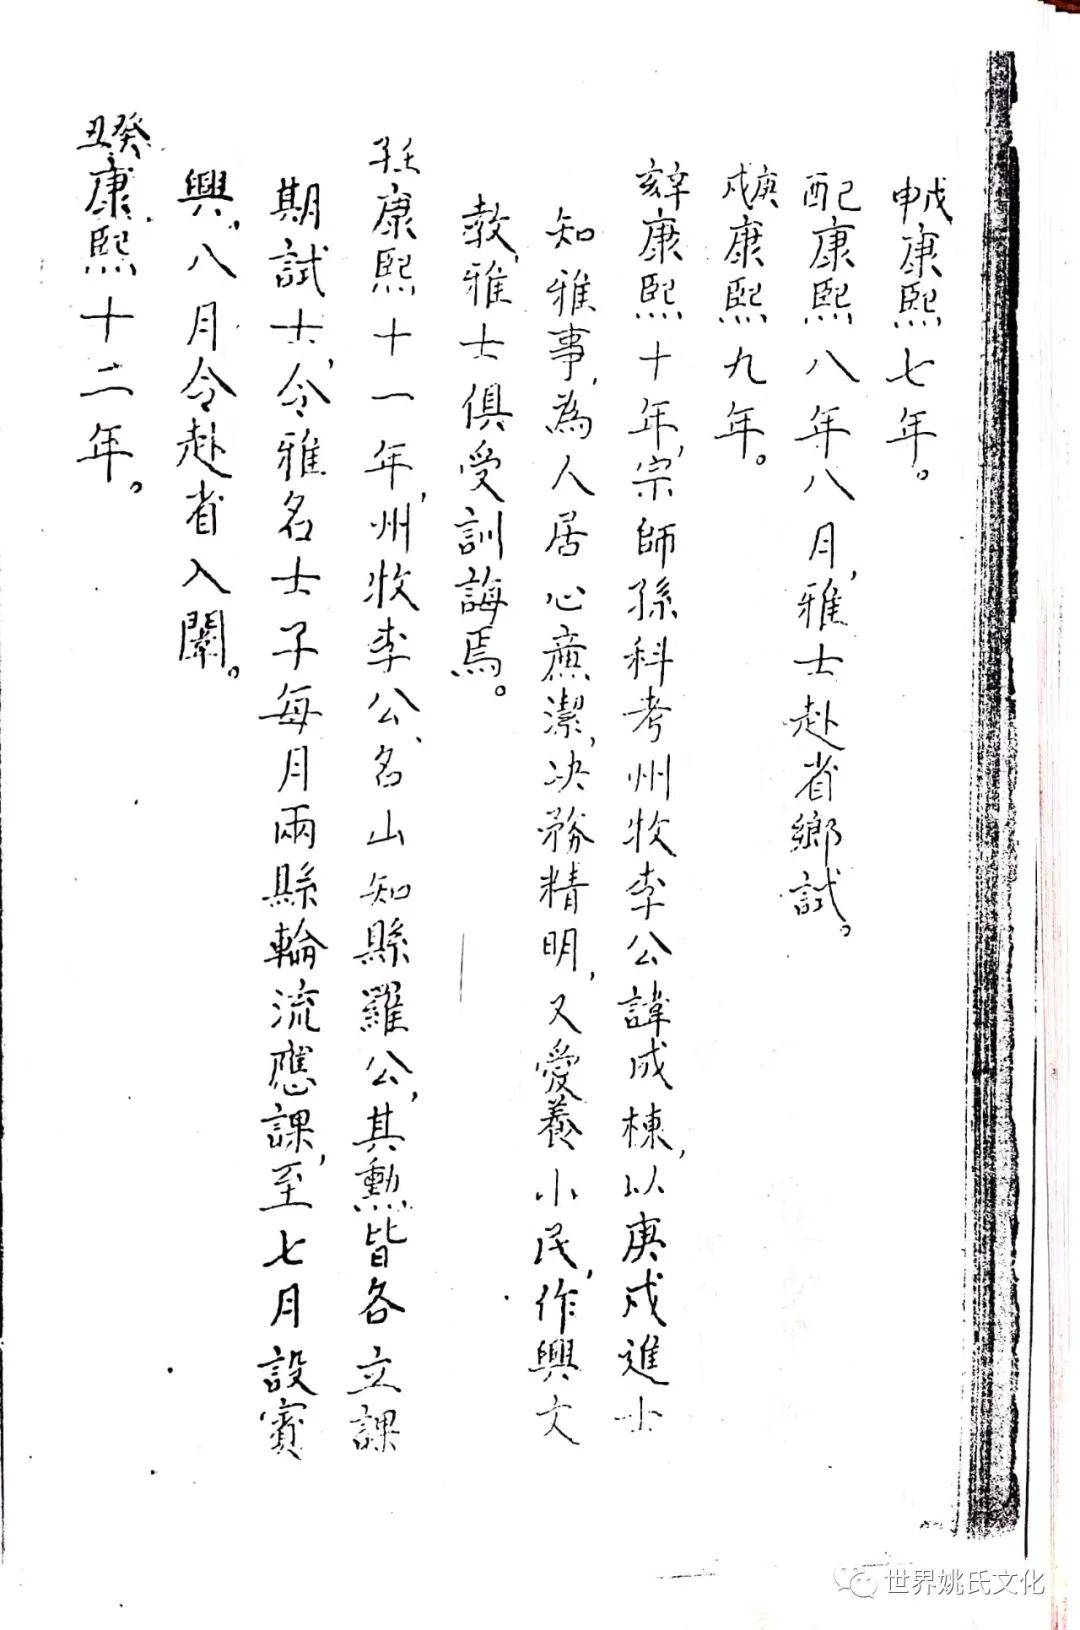 戊申康熙七年。
己酉康熙八年八月,雅士赴省鄉試。
庚戌康熙九年。
辛亥康熙十年,宗師孫科考州牧李公諱成棟,以庚戌進士
知雅事,為人居心廉潔,决務精明,又愛養小民,作興文
教,雅士俱受訓誨焉。
壬子康熙十一年,州牧李公、名山知縣羅公,其勳皆各立課
期試士,令雅名士子每月兩縣輪流應課,至七月設賓
興,八月令赴省入闈。
癸丑康熙十二年。
世界姚氏文化